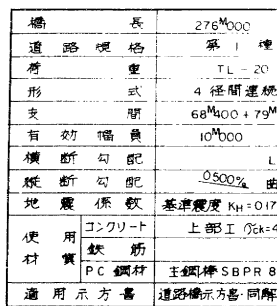 橋長 276ᴹ000
道路規格 第1種
荷重 TL-20
形式 4径間連続
支間 68ᴹ400+79ᴹ
有効幅員 10ᴹ000
横断勾配 L
縦断勾配 0.500% 曲
地震係数 基準震度 KH=0.17
使用材質 コンクリート 上部工 σck=4
鉄筋
PC鋼材 主鋼棒SBPR 8
適用示方書 道路橋示方書・同解